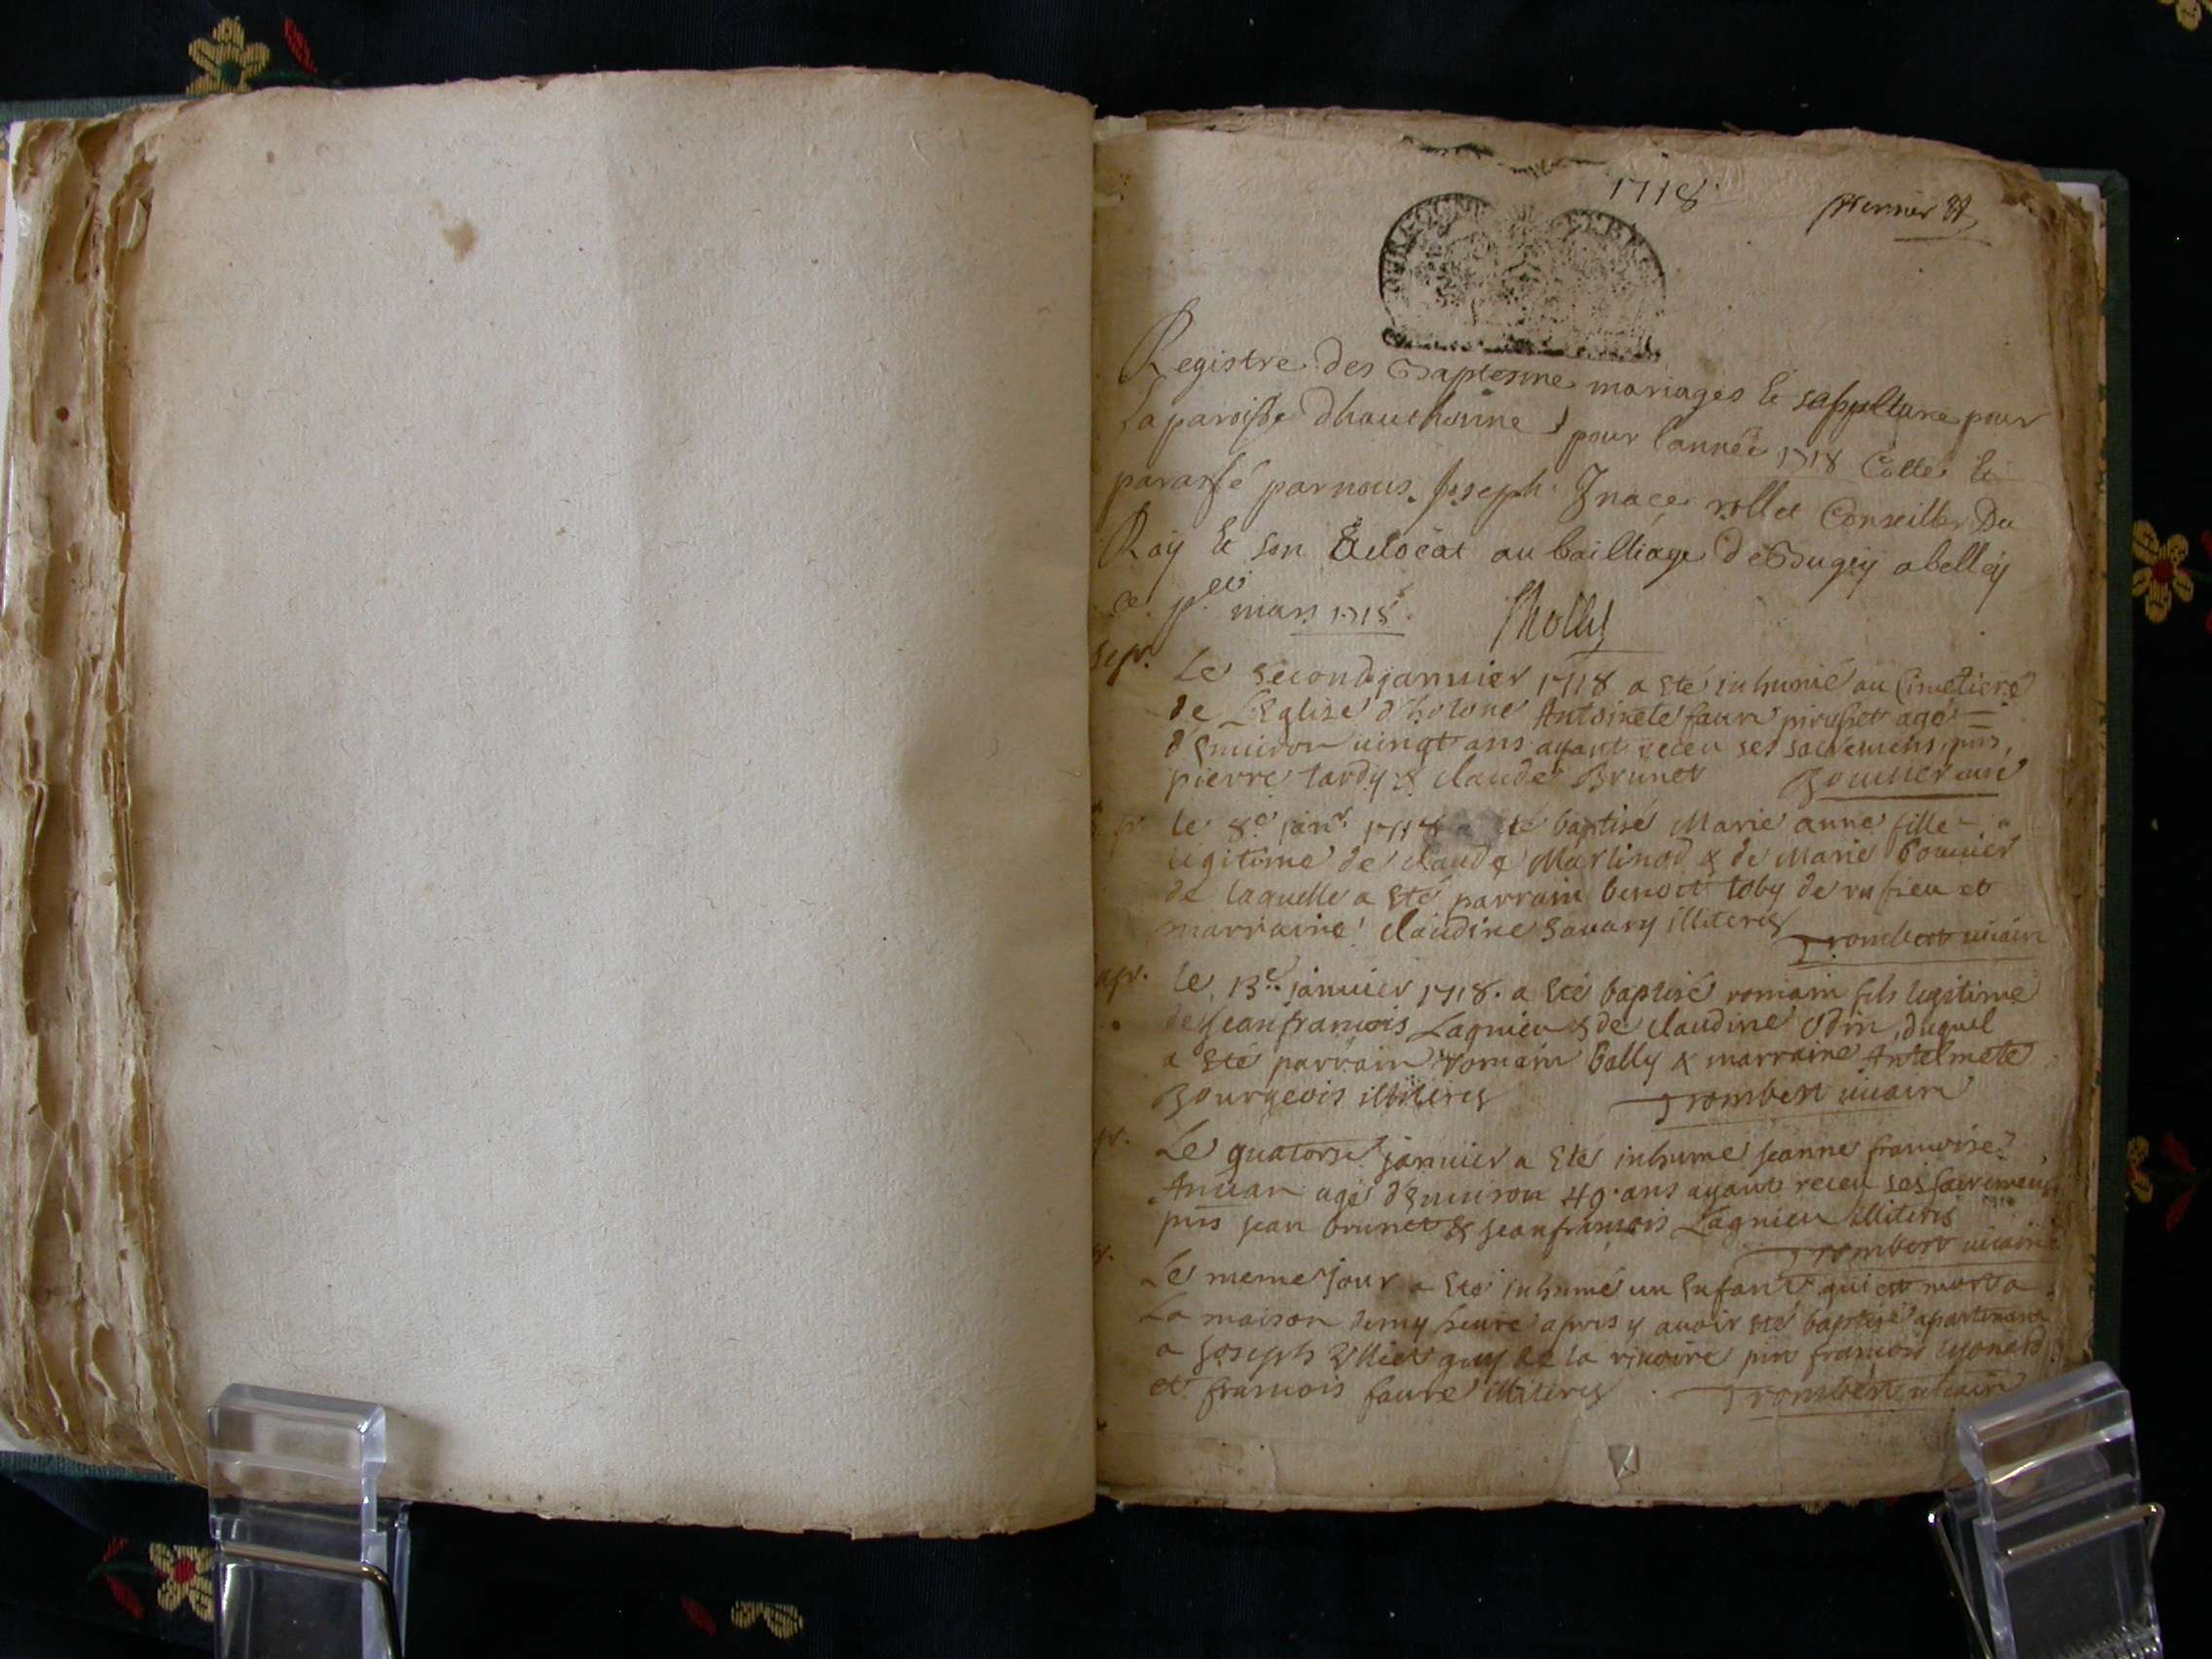 1718
premier
Registre des Baptesme mariages Et sepulture pour
la paroisse dhauthonne pour l'année 1718 Cotté Et
paraffé par nous Joseph Jnace rollet Conseiller Du
Roy Et son advocat au bailliage de Bugey a belley
ce mars 1718 Rollet
sepr.
Le second janvier 1718 a Eté inhumé au Cimetiere
de L'Eglise d'hotone Antoinete faure agé
d'Environ vingt ans ayant receu ses sacremens, pns,
pierre tardy & claude Brunet Bouvier curé
le 8e janr. 1718 a été baptisé Marie anne fille
legitime de claude Martinod & de Marie bouvier
de laquelle a Eté parrain benoit toby de rufieu et
marraine claudine Savary illiteres
Trombert vicaire
le 13e janvier 1718. a Eté baptisé romain fils legitime
de Jeanfrancois Lagnieu & de claudine Odin, duquel
a Eté parrain romain bally & marraine Antelmete
Bourgeois illiteres Trombert vicaire
Le quatorse janvier a Eté inhumé jeanne francoise
agé d'Environ 40 ans ayant receu ses sacremens
pns jean brunet & jeanfrancois Lagnieu illiteres
Trombert vicaire
Le meme jour a Eté inhumé un Enfant qui est mort a
La maison demy heure apres y avoir Eté baptisé apartenant
a Joseph guy de la rivoire pns francois lyonard
et francois faure illiteres Trombert vicaire